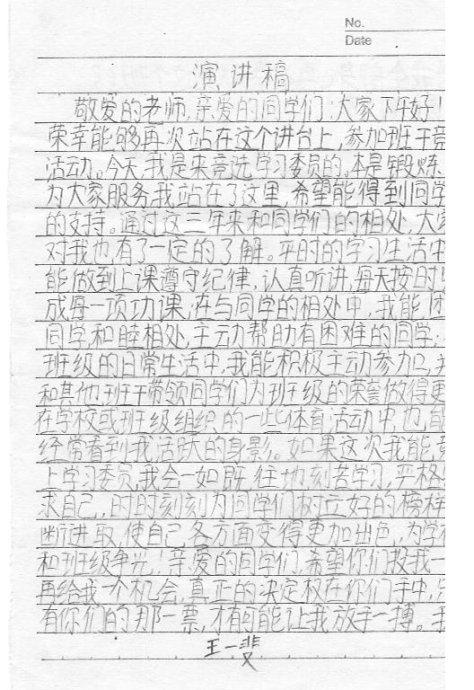 No.
Date
演讲稿
敬爱的老师,亲爱的同学们:大家下午好!
荣幸能够再次站在这个讲台上,参加班干竞
活动。今天,我是来竞选学习委员的。本是锻炼、
为大家服务,我站在了这里,希望能得到同学
的支持。通过这三年来和同学们的相处,大家
对我也有了一定的了解。平时的学习生活中
能做到上课遵守纪律,认真听讲,每天按时
成每一项功课,在与同学的相处中,我能团
同学,和睦相处,主动帮助有困难的同学;
班级的日常生活中,我能积极主动参加,并
和其他班干带领同学们为班级的荣誉做得更
在学校或班级组织的一些体育活动中,也能
经常看到我活跃的身影。如果这次我能竞
上学习委员,我会一如既往地刻苦学习,严格
求自己,时时刻刻为同学们树立好的榜样
断进取,使自己各方面变得更加出色,为学校
和班级争光!亲爱的同学们,希望你们投我一
再给我一个机会,真正的决定权在你们手中,只
有你们的那一票,才有可能让我放手一搏。我
王一斐